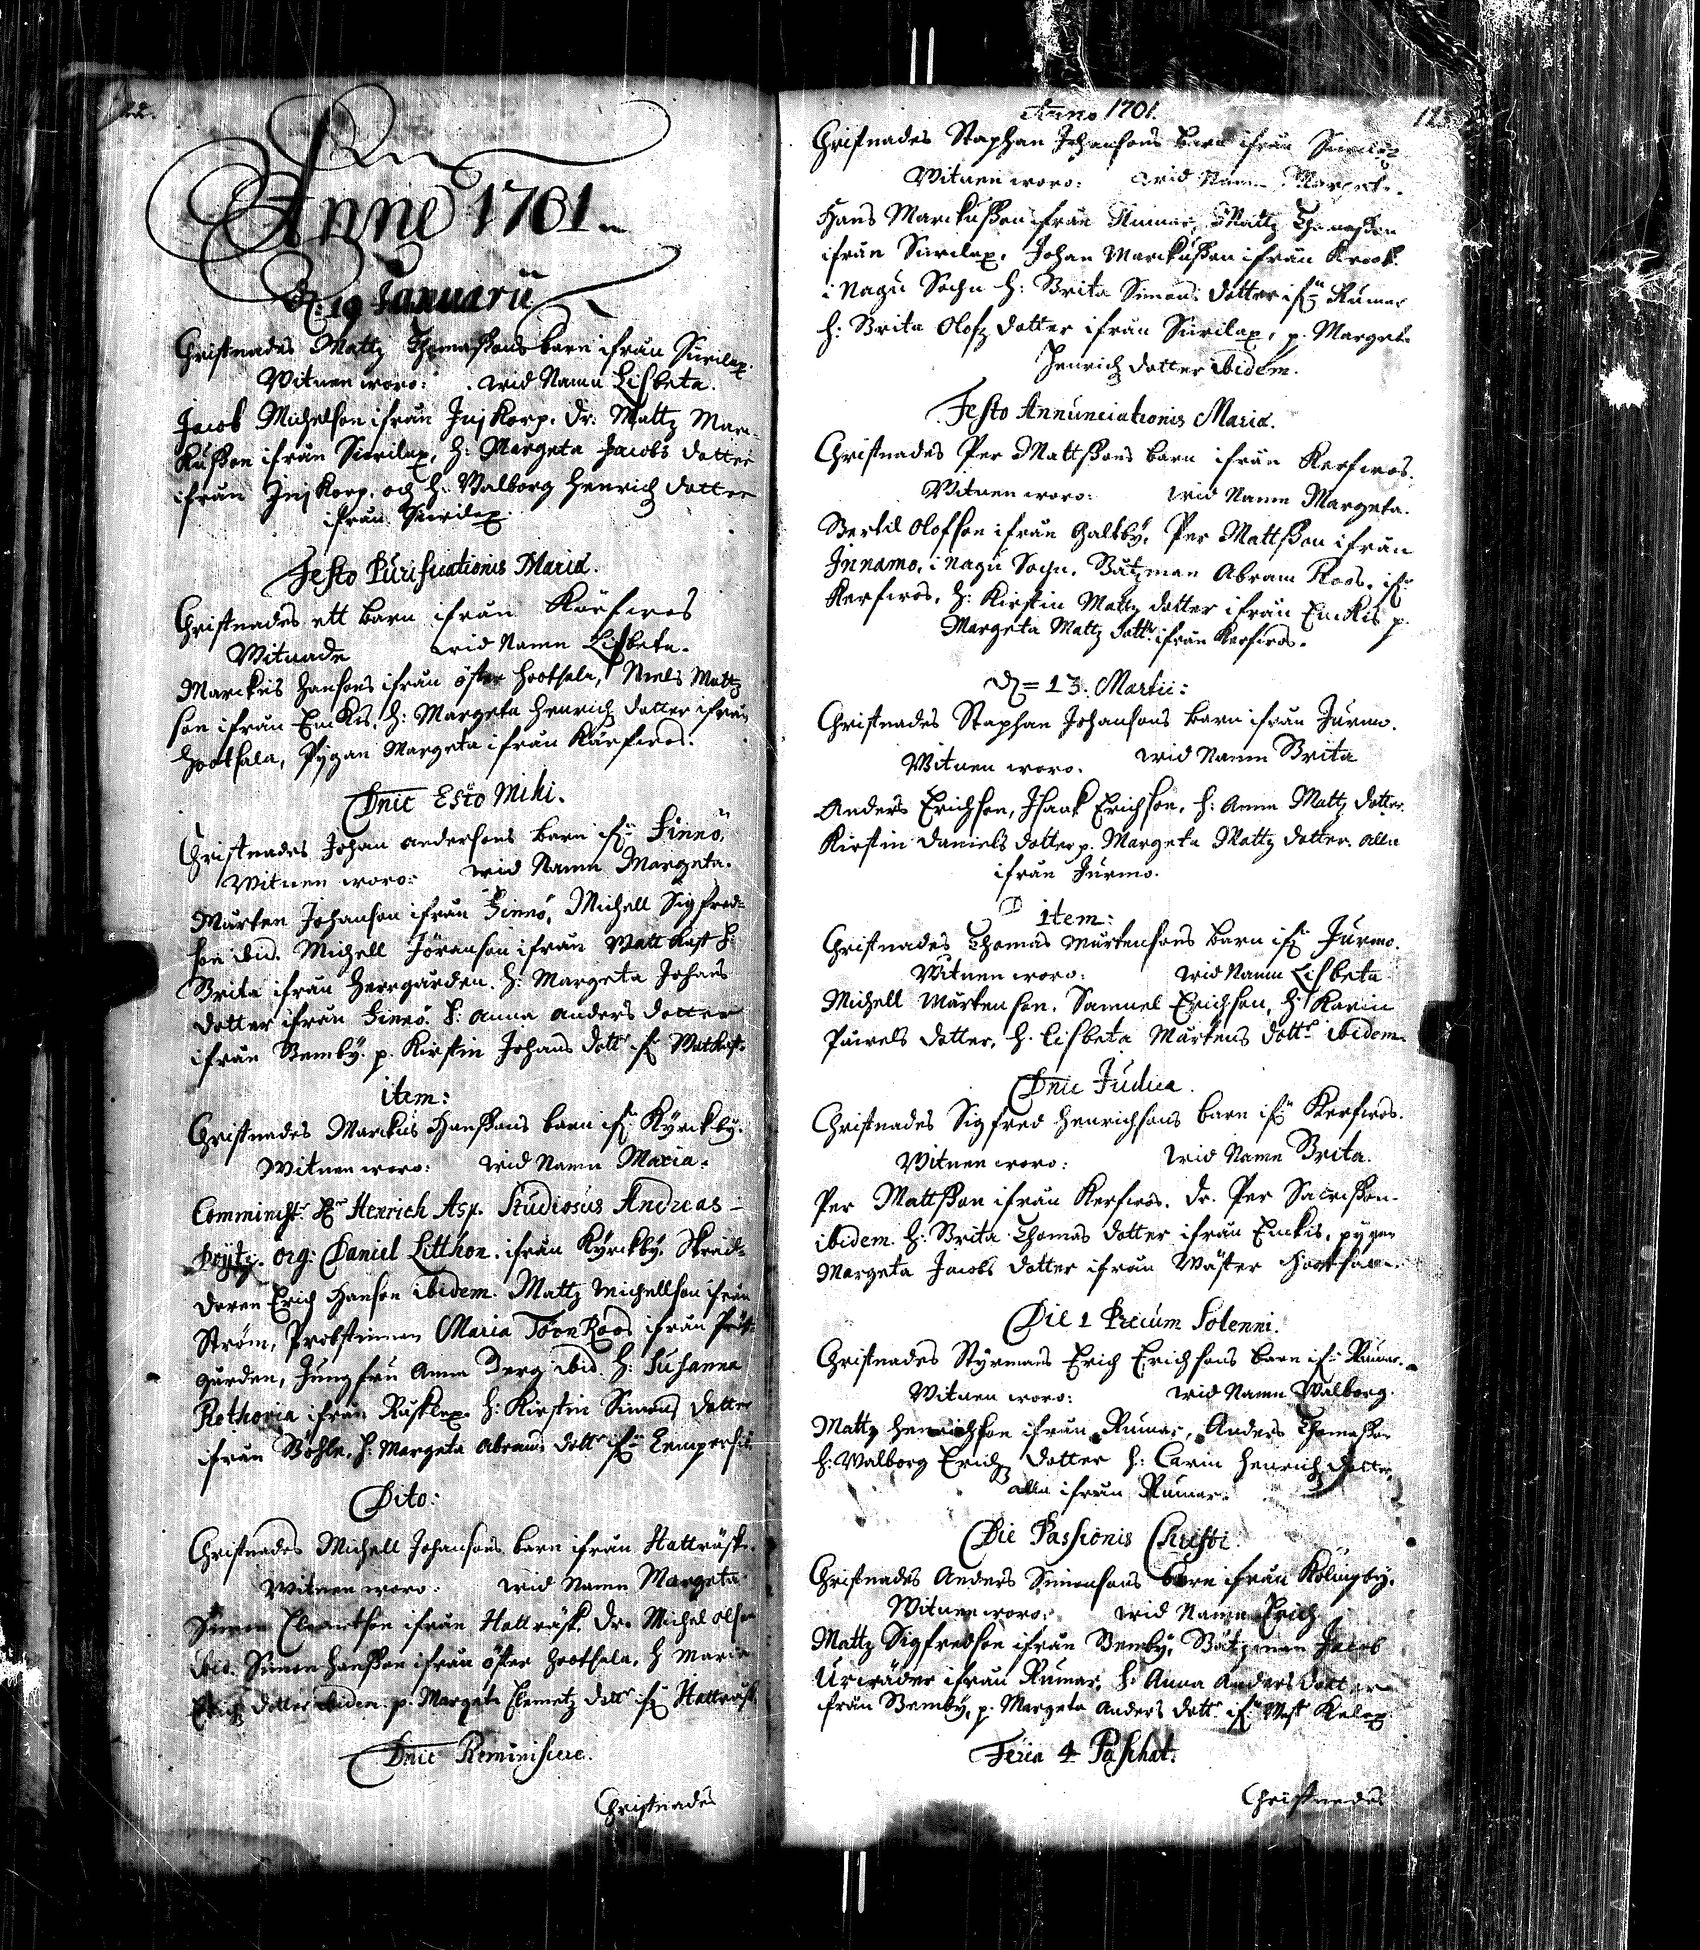 Anno 1701.
D: 19 Januarii
Christnades Mattz Thomassons barn ifrån Sürilax.
Witnen woro: wid Namn Lisbeta.
Jacob Michelson ifrån Inj Korp. Dr. Mattz Marc-
kusson ifrån Sürilax, H: Margeta Jacobs dotter
ifrån Inj Korp. och H: Walborg Henrich dotter
ifrån Sürilax.
Festo Purificationis Mariæ.
Christnades ett barn ifrån Kärfwos
Witnade wid Namn Lisbeta.
Marckus Hansons ifrån öster Hootsala, Niels Mattz
son ifrån Enckis. H: Margeta Henrich dotter ifrån
Hootsala, Pygan Margeta ifrån Kärfwos.
Dnic Esto Mihi.
Christnades Johan andersons barn ifr: Finnö.
Witnen woro: wid Namn Margeta.
Mårten Johanson ifrån Finnö, Michell Sigfred-
son ibid. Michell Jöranson ifrån Wattkast H:
Brita ifrån Herrgården. H: Margeta Johans
dotter ifrån Finnö. H: Anna anders dotter
ifrån Bemby. p. Kirstin Johans dottr ifr Watkast.
item:
Christnades Marckus Hanssons barn ifr: Kyrckby.
Witnen woro: wid Namn Maria.
Comminist: Hr Henrich Asp. Studiosus Andreas
Prytz. org: Daniel Litthon. ifrån Kyrckby. Skräd-
daren Erich Hanson ibidem. Mattz Michellson ifrån
Ström, Probstinnan Maria TörnRoos ifrån Präst-
gården, Jungfru Anna Berg ibid. H: Susanna
Rethoria ifrån Rusklax. H: Kirstin Simons dotter
ifrån Böhle, H: Margeta Abrams dottr ifr:
Dito:
Christnades Michell Johansons barn ifrån Hatträsk.
Witnen woro: wid Namn Margeta
Simon ifrån Hatträsk, Dr. Michel olson
ibid. Simon Hansson ifrån öster Hootsala, H Maria
Erich dotter ibidem. p. Margeta Clemetz dottr ifr Hatträsk
Dnic Reminiscere.
Christnades
Anno 1701.
Christnades Staphan Johansons barn ifrån
Witnen woro: wid Namn
Hans Marckusson ifrån Rumar, Mattz Thomasson
ifrån Sürilax, Johan Marckusson ifrån Krook
i Nagu Sochn H: Brita Simons dotter ifr: Rumar
H: Brita Olofz dotter ifrån Sürilax, p. Margeta
Henrich dotter ibidem.
Festo Annunciationis Mariæ.
Christnades Per Mattssons barn ifrån Kerfwos.
Witnen woro: wid Namn Margeta.
Bertil Olofson ifrån Galtby, Per Mattsson ifrån
Innamo, i Nagu Sochn. Båtzman Abram Roos, ifr
Kerfwos, H: Kirstin Mattz dotter ifrån Enckis p.
Margeta Mattz dottr ifrån Kerfwos.
D = 13. Martii:
Christnades Staphan Johansons barn ifrån Jurmo.
Witnen woro. wid Namn Brita
Anders Erichson, Isaak Erichson, H: Anna Mattz dotter.
Kirstin Daniels dotter p. Margeta Mattz dotter. alla
ifrån Jurmo.
D item:
Christnades Thomas Mårtensons barn ifr Jurmo.
Witnen woro: wid Namn Lisbeta
Michell Mårtenson, Samuel Erichson, H: Karin
Påwels dotter, H. Lisbeta Mårtens dottr ibidem.
Dnic Judica.
Christnades Sigfred Henrichsons barn ifr: Kerfwos.
Witnen woro: wid Namn Brita.
Per Mattsson ifrån Kerfwos. Dr. Per
ibidem. H: Brita Thomas dotter ifrån Enckis, pygan
Margeta Jacobs dotter ifrån Wäster Hootsala.
Die 1 Precum Solenni.
Christnades Styrmans Erich Erichsons barn ifr: Rumar.
Witnen woro: wid Namn Walborg.
Mattz Henrichson ifrån Rumar, Anders Thomasson
H: Walborg Erichz dotter H: Carin Henrichz dotter,
alla ifrån Rumar.
Die Passionis Christi.
Christnades Anders Simonsons barn ifrån Kålingby.
Witnen woro: wid Namn Erich
Mattz Sigfredson ifrån Bemby, Båtzman Jacob
Urwäder ifrån Rumar, H: Anna Anders dotter
ifrån Bemby, p. Margeta Anders dottr ifr: Wäst Kelax.
Feria 4 Paschat.
Christnades